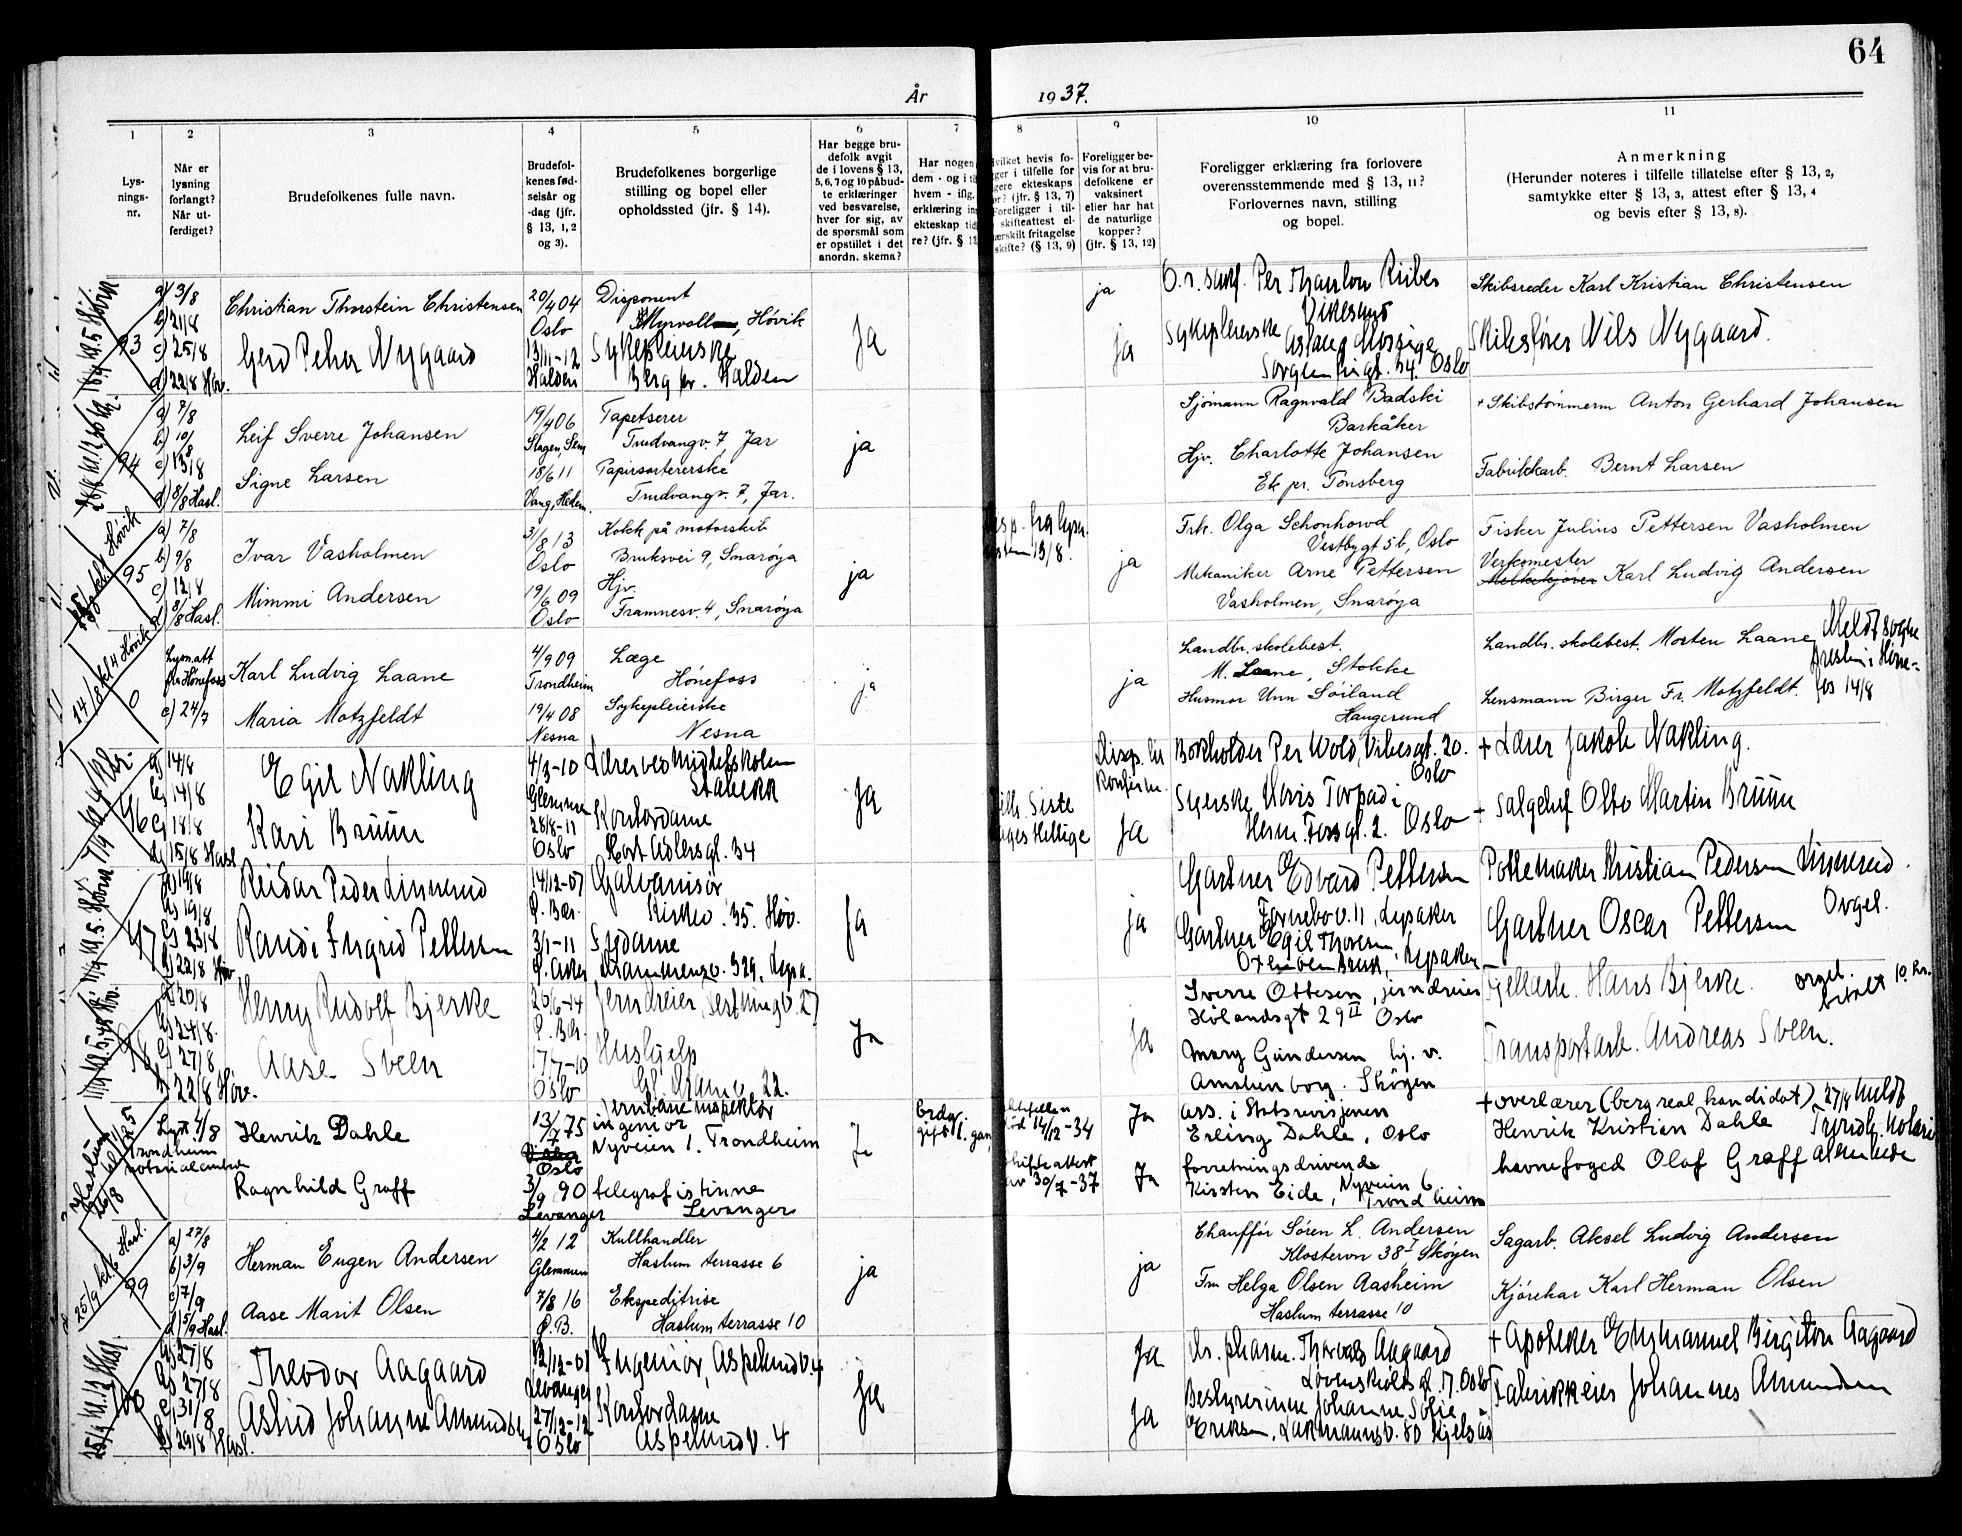 64
År 1937.
1 2 3 4 5 6 7 8 9 10 11
Lysningsnr.
Når er lysning forlangt? Når utferdiget?
Brudefolkenes fulle navn.
Brudefolkenes fødselsår og -dag (jfr. § 13, 1, 2 og 3).
Brudefolkenes borgerlige stilling og bopel eller opholdssted (jfr. § 14).
Har begge brudefolk avgitt de i lovens § 13, 5, 6, 7 og 10 påbudte erklæringer ved besvarelse, hver for sig, av de spørsmål som er opstillet i det anordn. skema?
Foreligger bevis for at brudefolkene er vaksinert eller har hatt de naturlige kopper? (jfr. § 13, 12)
Foreligger erklæring fra forlovere overensstemmende med § 13, 11? Forlovernes navn, stilling og bopel.
Anmerkning
(Herunder noteres i tilfelle tillatelse efter § 13, 2, samtykke etter § 13, 3, attest efter § 13, 4 og bevis efter § 13, 8).
93
a) 3/8
b) 21/8
c) 25/8
d) 22/8 Høv.
Christian Thorstein Christensen
20/4 04
Oslo
Disponent
Høvik
Ja
ja
Skibsreder Karl Kristian Christensen
Gerd Nygaard
13/11-12
Halden
Sykepleierske
Berg pr. Halden
ja
Sykepleierske Aslaug Mossige
Sorgenfrigt. 34. Oslo
Skibsfører Nils Nygaard.
94
a) 7/8
c) 13/8
d) 8/8 Hasl.
Leif Sverre Johansen
19/4 06
Slagen, Sem
Tapetserer
Trudvangv. 7 Jar
ja
Sjömann Ragnvald Badski
Barkåker
+ Skibstömmerm Anton Gerhard Johansen
Signe Larsen
18/6 11
Vang, Hedm.
Papirsortererske
Trudvangv. 7, Jar.
Hjv. Charlotte Johansen
Ek pr. Tönsberg
Fabrikkarb. Bernt Larsen
95
a) 7/8
b) 9/8
c) 12/8
d) 8/8 Hasl.
Ivar Vasholmen
3/8 13
Oslo
Kokk på motorskib
Bruksvei 9, Snaröya
ja
ja
Frk. Olga Schonhowd
Vestbygt 5b, Oslo
Fisker Julius Pettersen Vasholmen
Mimmi Andersen
19/6 09
Oslo
Hjv.
Framnesv. 4, Snaröya
Mekaniker Arne Pettersen
Vasholmen, Snaröya
Verksmester
Karl Ludvig Andersen
0
Lysn.att
fra Hönefoss
c) 24/7
Karl Ludvig Laane
4/9 09
Trondheim
Læge
Hönefoss
ja
ja
Landbr. skolebest.
M. Laane, Stokke
Landbr. skolebest. Morten Laane
Maria Motzfeldt
19/4 08
Nesna
Sykepleierske
Nesna
Husmor Unn Söiland
Haugesund
Lensmann Birger Fr. Motzfeldt.
96
a) 14/8
b) 14/8
c) 18/8
d) 15/8 Hasl
Egil Nakling
4/3-10
Glemmen
Lærer ved Middelskolen
Stabekk
Ja
Bokholder Per Wold, Vibesgt. 20.
Oslo
+ Lærer Jakob Nakling.
Kari Bruun
28/8-11
Oslo
Kontordame
Kort Adlersgt. 34
Ja
Oslo
+ Salgchef Otto Martin Bruun
97
a) 19/8
b) 19/8
c) 23/8
d) 22/8 Høv
Reidar Peder Linnerud
14/12-07
Ø. Bær.
Galvanisør
Kirkev. 35. Høv.
Ja
ja
Gartner Edvard Pettersen
Fornebov. 11, Lysaker
Pottemaker Kristian Pedersen Linnerud.
Orgel.
Randi Ingrid Pettersen
3/1-11
Ø. Aker
Sydame
Drammensv. 329, Lysa.
Gartner Egil Thoresen
Lysaker
Gartner Oscar Pettersen
98
a) 20/8
b) 24/8.
c) 27/8
d) 22/8 Høv.
Henry Rudolf Bjerke
26/6-14
Ø. Bær.
Jerndreier
Ja
Ja
Sverre Ottesen, jerndreier
Hølandsgt 29 II Oslo
Hans Bjerke.
orgel.
betalt 10 kr.
Aase Sveen
17/7-10
Oslo
Hushjelp
Gl. Dramv. 22.
Mary Gundersen hj. v.
Amalienborg. Skögen
Transportarb. Andreas Sveen.
Trondheim
Henrik Dahle
13/7 75
Oslo
Jernbaneinspektør
ingeniør
Nyveien 1. Trondheim
Ja
14/12-34
Ja
ass. i Statsrevisjonen
Erling Dahle, Oslo
+ overlærer (berg real kandidat)
Henrik Kristian Dahle
Ragnhild Graff
3/9 90
Levanger
telegrafistinne
Levanger
30/7-37
Ja
forretningsdrivende
Kirsten Eide, Nyveien 6
Trondheim
havnefoged Olaf Graff
99
25/9 kl. 6 Hasl.
a) 27/8
b) 3/9
c) 7/9
d) 5/9 Hasl.
Herman Eugen Andersen
4/2 12
Glemmen
Kullhandler
Haslum terrasse 6
ja
ja
Chaufför Sören L. Andersen
Klostervn 38 I Sköyen
Sagarb. Aksel Ludvig Andersen
Aase Marit Olsen
7/8 16
Ø.B.
Ekspeditrise
Haslum terrasse 10
Fru Helga Olsen Aasheim
Haslum terrasse 10
Kjörekar Karl Herman Olsen
100
a) 27/8
b) 27/8
c) 31/8
d) 29/8 Hasl.
Theodor Aagaard
12/12-01
Levanger
Ingeniør, Aspelundv. 4
Ja
Ja
Dr. pharm. Thorvald Aagaard
Løvenskiolds gt. 17. Oslo
+ Apoteker Emmanuel Birgiton Aagaard
Astrid Johanne Amundsen
27/12-12
Oslo
Kontordame
Aspelundv. 4
Ja
Bestyrerinne Johanne Solie
Eriksen, Lakmannsv. 80 Kjelsås
Fabrikkeier Johannes Amundsen